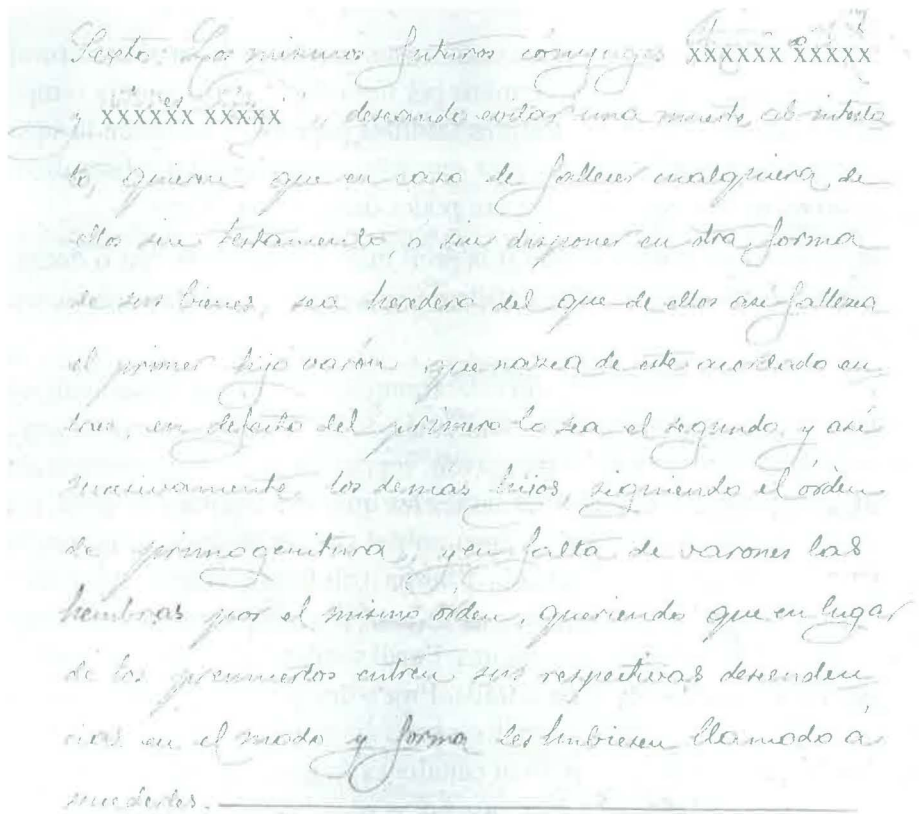 Sexto. Los mismos futuros cónyuges XXXXXX XXXXX
y XXXXXX XXXXX, deseando evitar una muerte ab intesta
to, quieren que en caso de fallecer cualquiera de
ellos sin testamento o sin disponer en otra forma
de sus bienes, sea heredero del que de ellos asi fallezca
el primer hijo varón que nazca de este acordado en
lace, en defecto del primero lo sea el segundo, y asi
sucesivamente los demas hijos, siguiendo el órden
de primogenitura, y en falta de varones las
hembras por el mismo órden, queriendo que en lugar
de los premuertos entren sus respectivas descenden
cias en el modo y forma les hubiesen llamado á
sucederles.